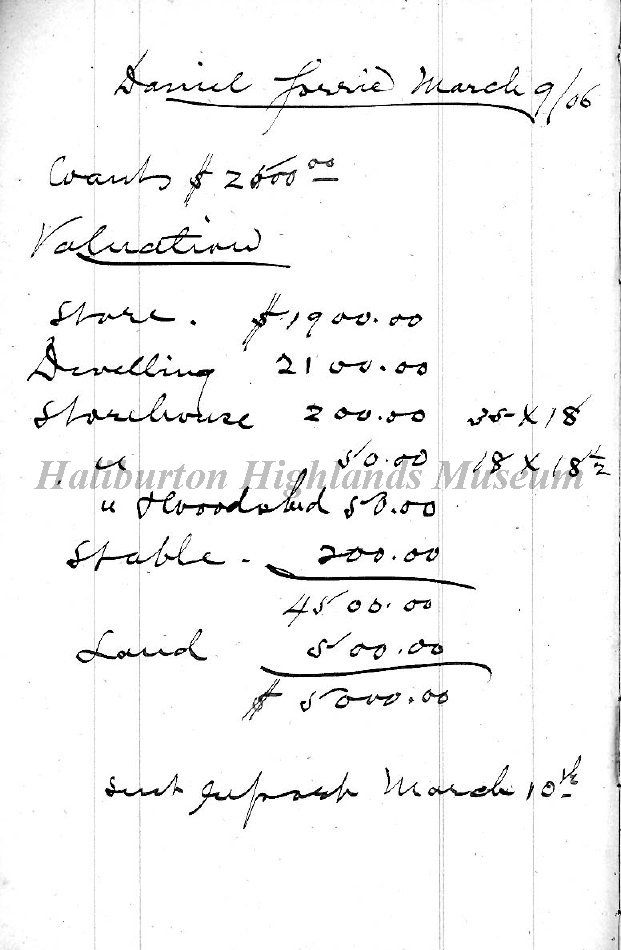 Daniel Gorrie March 9/06
Wants $ 2500 00
Valuation
Store. $1900.00
Dwelling 2100.00
Storehouse 200.00 35 X 18
" 50.00 18 X 18 1/2
Haliburton Highlands Museum
" & Woodshed 50.00
Stable - 200.00
4500.00
Land 500.00
$ 5000.00
sent report March 10th